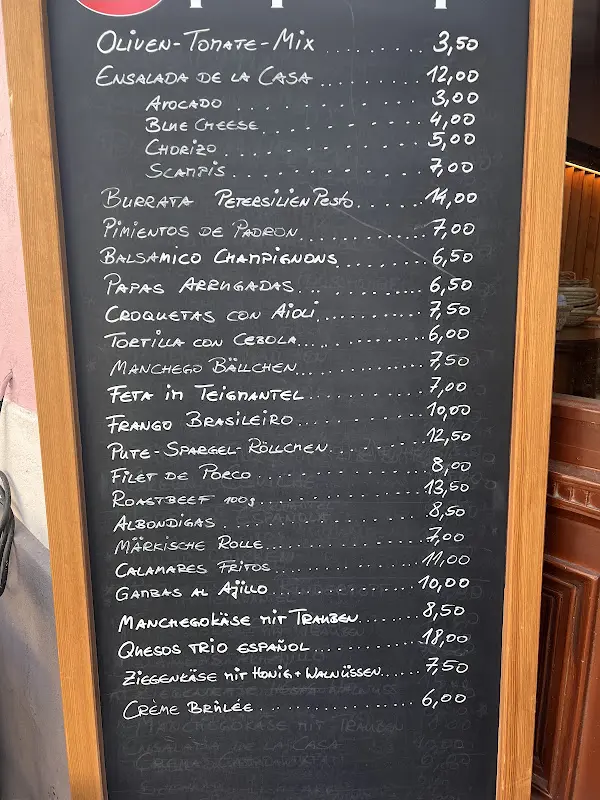 Oliven-Tomate-Mix ........ 3,50
Ensalada de la Casa ........ 12,00
Avocado ........ 3,00
Blue Cheese ........ 4,00
Chorizo ........ 5,00
Scampis ........ 7,00
Burrata Petersilien Pesto ........ 14,00
Pimientos de Padron ........ 7,00
Balsamico Champignons ........ 6,50
Papas Arrugadas ........ 6,50
Croquetas con Aioli ........ 7,50
Tortilla con Cebola ........ 6,00
Manchego Bällchen ........ 7,50
Feta im Teigmantel ........ 7,00
Frango Brasileiro ........ 10,00
Pute-Spargel-Röllchen ........ 12,50
Filet de Porco ........ 8,00
Roastbeef 100g ........ 13,50
Albondigas ........ 8,50
Märkische Rolle ........ 7,00
Calamares Fritos ........ 11,00
Gambas al Ajillo ........ 10,00
Manchegokäse mit Trauben ........ 8,50
Quesos trio español ........ 18,00
Ziegenkäse mit Honig + Walnüssen ........ 7,50
Crème Brûlée ........ 6,00
Manchegokäse mit Trauben
Ensalada de la Casa